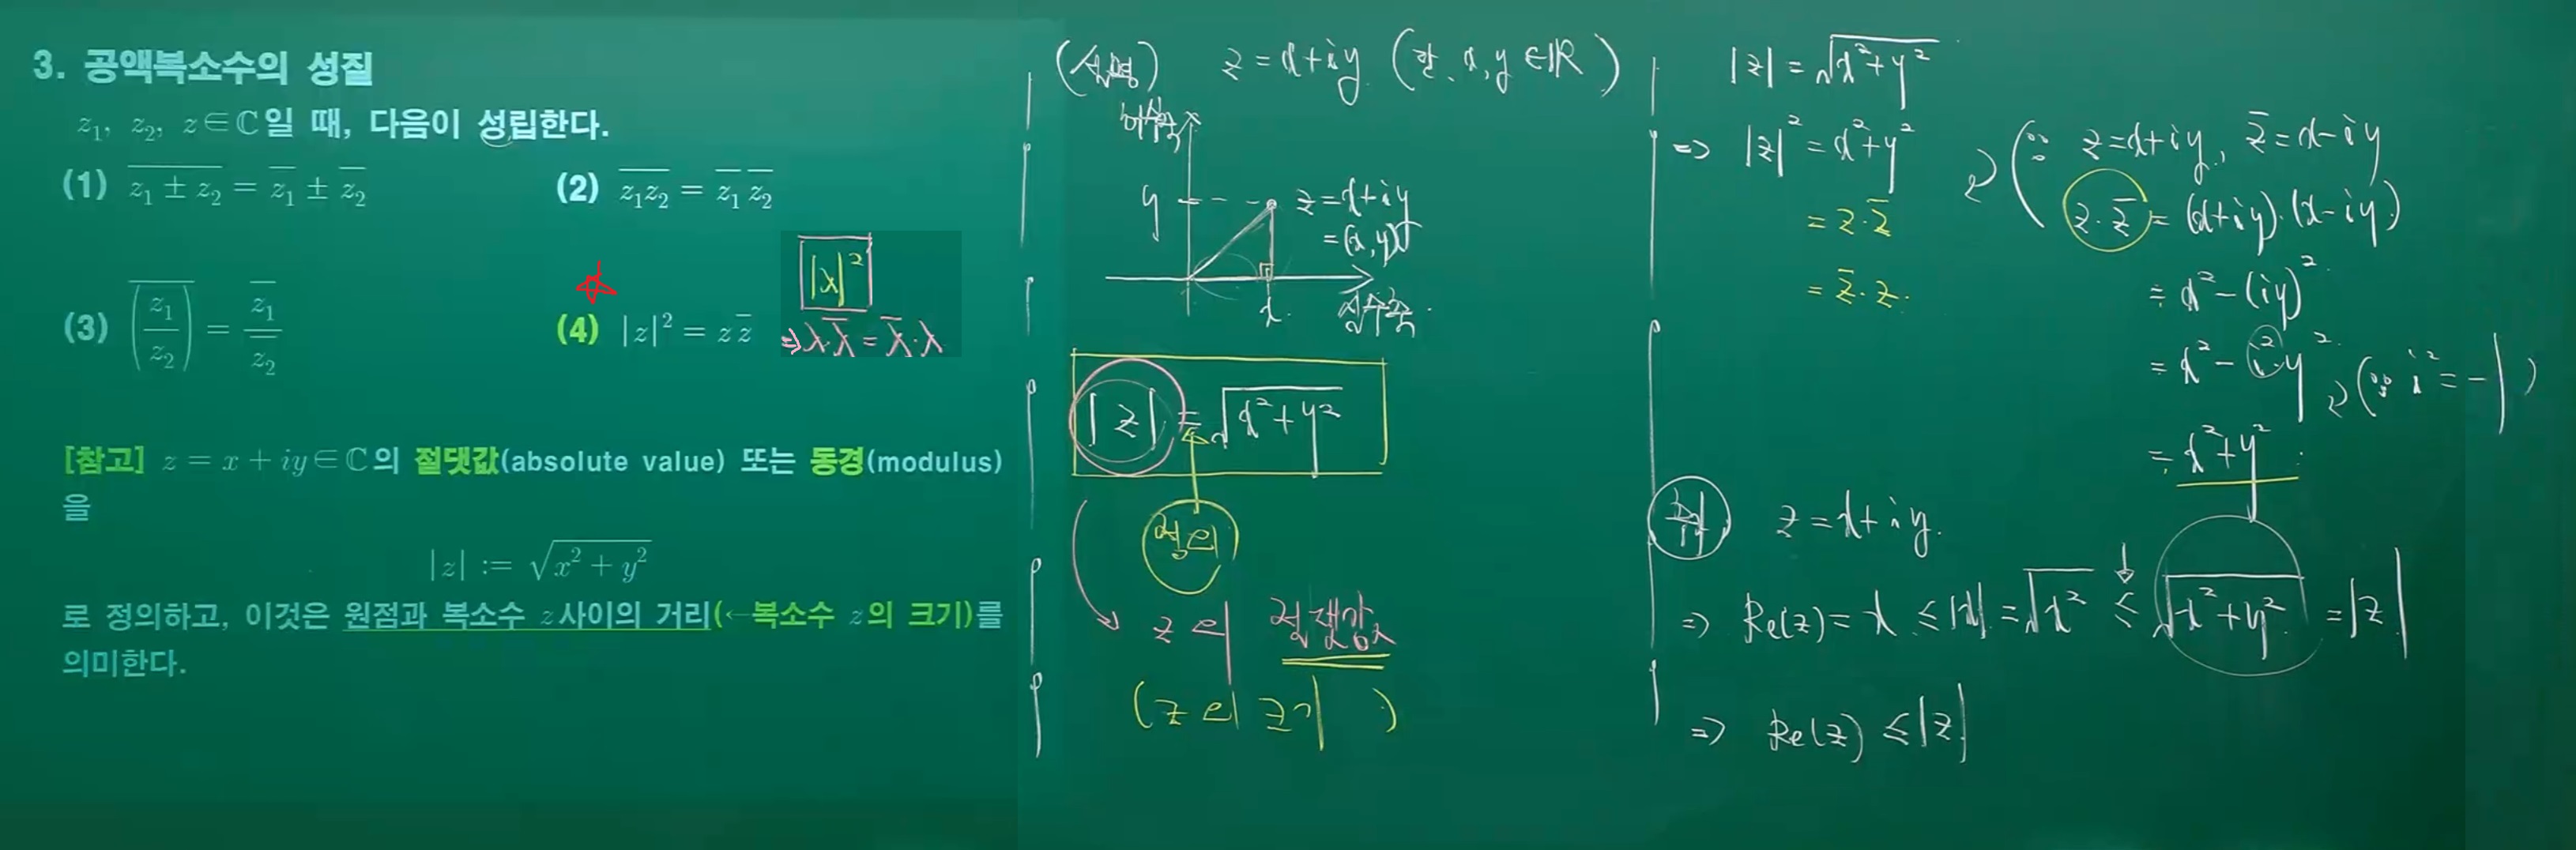 3. 공액복소수의 성질
z₁, z₂, z∈ℂ일 때, 다음이 성립한다.
(1) \overline{z₁ ± z₂} = \overline{z₁} ± \overline{z₂}
(2) \overline{z₁z₂} = \overline{z₁} \overline{z₂}
(3) \overline{(z₁/z₂)} = \overline{z₁}/\overline{z₂}
(4) |z|² = z\overline{z}
|λ|²
⇒ λ·\overline{λ} = \overline{λ}·λ
[참고] z = x + iy∈ℂ의 절댓값(absolute value) 또는 동경(modulus)
을
|z| := √(x² + y²)
로 정의하고, 이것은 원점과 복소수 z사이의 거리(←복소수 z의 크기)를
의미한다.
(설명) z = x+iy (단, x, y ∈ℝ)
허수축
y
z = x+iy
= (x, y)
x
실수축
|z| = √(x²+y²)
정의
z의 절댓값
(z의 크기)
|z| = √(x²+y²)
⇒ |z|² = x²+y²
= z·\overline{z}
= \overline{z}·z.
(∵ z = x+iy, \overline{z} = x-iy
z·\overline{z} = (x+iy)·(x-iy)
= x² - (iy)²
= x² - i²·y²
(∵ i² = -1)
= x²+y²
z = x+iy.
⇒ Re(z) = x ≤ |x| = √x² ≤ √(x²+y²) = |z|
⇒ Re(z) ≤ |z|